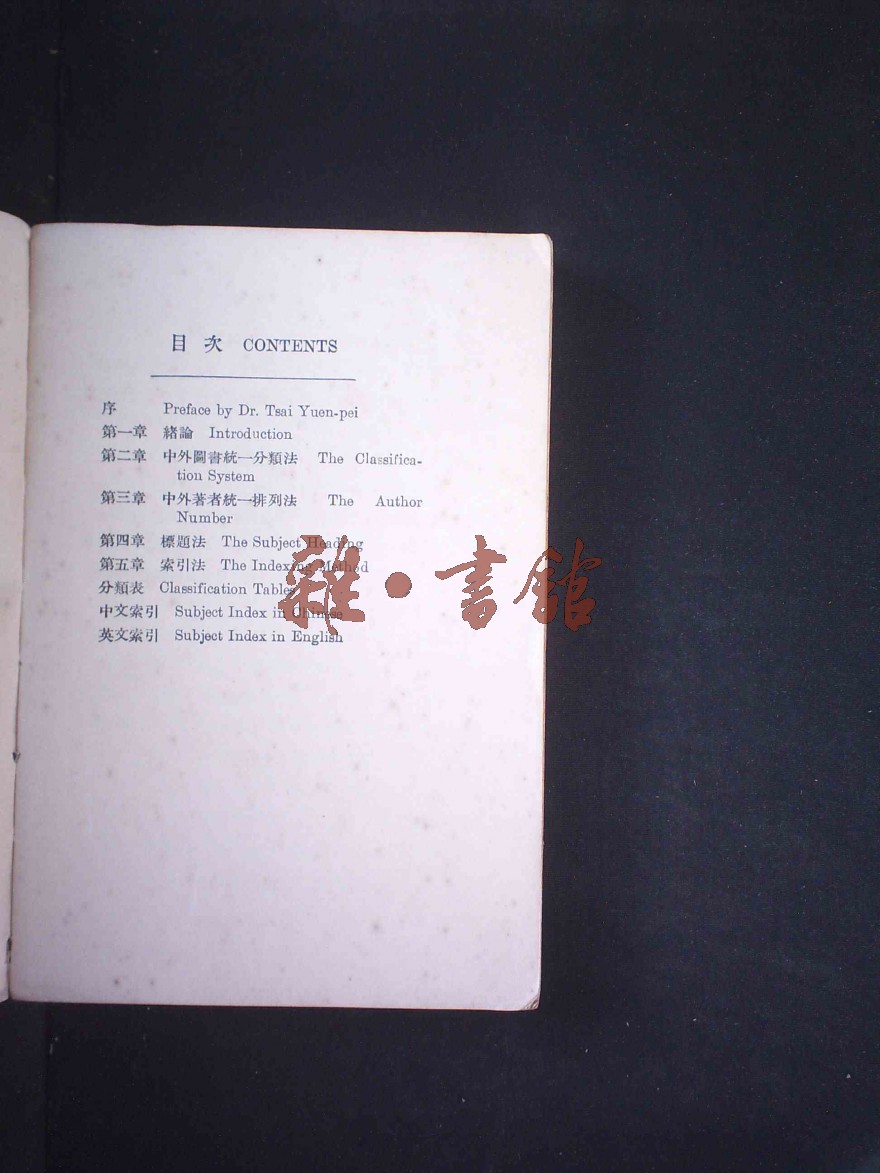 目次 CONTENTS
序 Preface by Dr. Tsai Yuen-pei
第一章 緒論 Introduction
第二章 中外圖書統一分類法 The Classifica-
tion System
第三章 中外著者統一排列法 The Author
Number
第四章 標題法 The Subject Heading
第五章 索引法 The Indexing Method
分類表 Classification Tables
中文索引 Subject Index in Chinese
英文索引 Subject Index in English
雜·書館